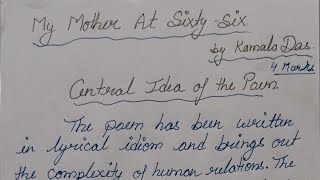 My Mother At Sixty Six
by Kamala Das.
4 Marks
Central Idea of the Poem
The poem has been written
in lyrical idiom and brings out
the complexity of human relations. The